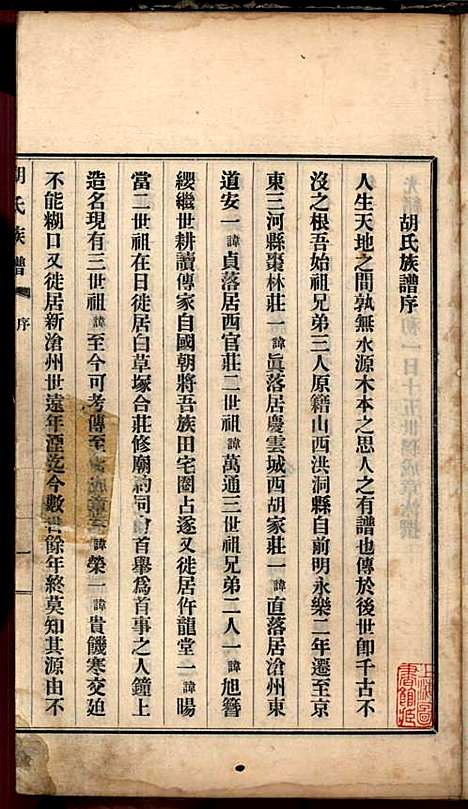 胡氏族譜序
人生天地之間孰無水源木本之思人之有譜也傳於後世卽千古不
沒之根吾始祖兄弟三人原籍山西洪洞縣自前明永樂二年遷至京
東三河縣棗林莊一諱眞落居慶雲城西胡家莊一諱直落居滄州東
道安一諱貞落居西官莊二世祖諱萬通三世祖兄弟二人一諱旭簪
纓繼世耕讀傳家自國朝將吾族田宅圈占遂又徙居仵龍堂一諱暘
當二世祖在日徙居白草塚合莊修廟鑄同會首舉爲首事之人鐘上
造名現有三世祖諱至今可考傳至諱榮一諱貴饑寒交迫
不能糊口又徙居新滄州世遠年湮迄今數百餘年終莫知其源由不
胡氏族譜
序
一
上海圖書館藏